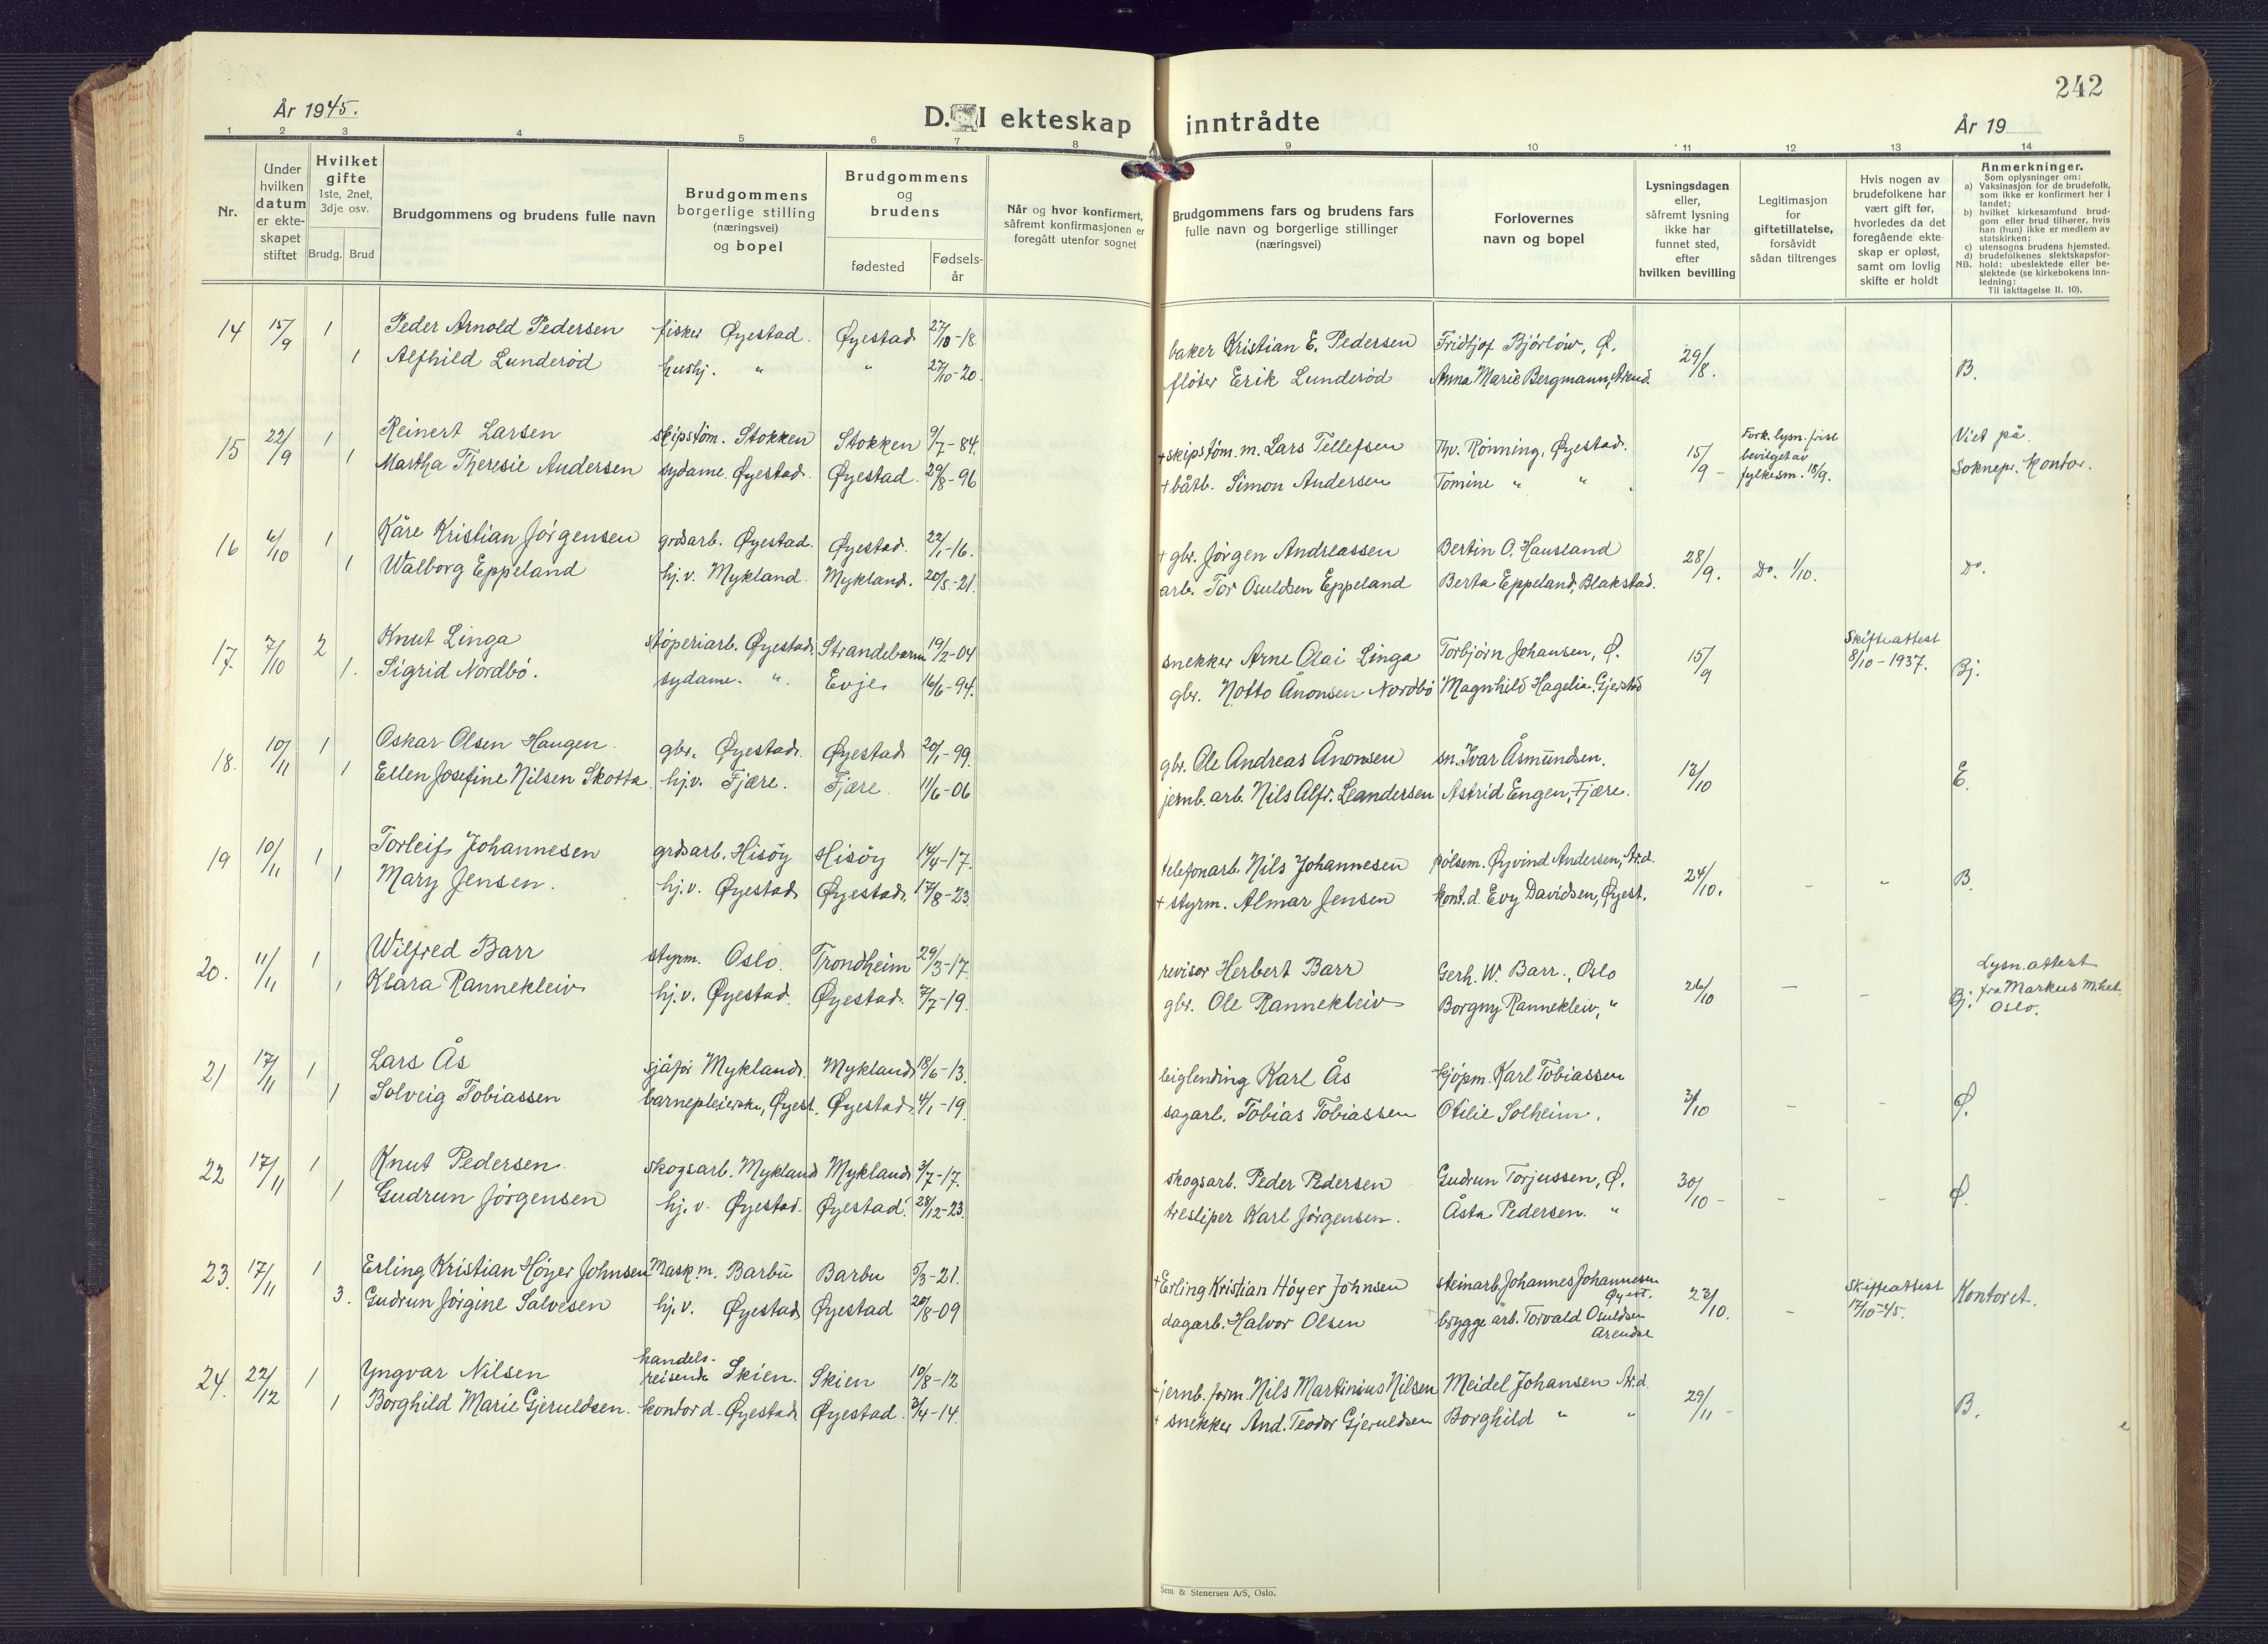 242
År 1945.
D. I ekteskap inntrådte
År 19
1 2 3 4 5 6 7 8 9 10 11 12 13 14
Nr.
Under hvilken datum er ekteskapet stiftet
Hvilket gifte 1ste, 2net, 3dje osv.
Brudg. Brud
Brudgommens og brudens fulle navn
Brudgommens borgerlige stilling (næringsvei) og bopel
Brudgommens og brudens
fødested
Fødsels-år
Når og hvor konfirmert, såfremt konfirmasjonen er foregått utenfor sognet
Brudgommens fars og brudens fars fulle navn og borgerlige stillinger (næringsvei)
Forlovernes navn og bopel
Lysningsdagen eller, såfremt lysning ikke har funnet sted, efter hvilken bevilling
Legitimasjon for giftetillatelse, forsåvidt sådan tiltrenges
Hvis nogen av brudefolkene har vært gift før, hvorledes da det foregående ekteskap er opløst, samt om lovlig skifte er holdt
Anmerkninger.
Som oplysninger om:
a) Vaksinasjon for de brudefolk, som ikke er konfirmert her i landet;
b) hvilket kirkesamfund brudgom eller brud tilhører, hvis han (hun) ikke er medlem av statskirken;
c) utensogns brudens hjemsted.
d) brudefolkenes slektskapsforhold: ubeslektede eller beslektede (se kirkebokens innledning:
NB.
Til iakttagelse II. 10).
14 15/9 1 Peder Arnold Pedersen fisker Øyestad. Øyestad 27/10-18 baker Kristian E. Pedersen Fridtjof Bjørlöw, Ø. 29/8. B.
1 Alfhild Lunderød hushj. " " 27/10-20. fløter Erik Lunderød Anna Marie Bergmann, Arend.
15 22/9 1 Reinert Larsen skipstøm. Stokken Stokken 9/7-84. + skipstøm. m. Lars Tellefsen Thv. Rønning, Øyestad. 15/9 - Fork. lysn. frist bevilget av fylkesm. 18/9. Viet på Soknepr. kontor.
1 Martha Theresie Andersen sydame. Øyestad. Øyestad. 29/8-96 + båtb. Simon Andersen Tomine " "
16 6/10 1 Kåre Kristian Jørgensen grdsarb. Øyestad. Øyestad. 22/1-16. + gbr. Jørgen Andreassen Bertin O. Hausland 28/9. Do. 1/10. Do.
1 Walborg Eppeland hj.v. Mykland. Mykland. 20/8-21. arb. Tor Osuldsen Eppeland Berta Eppeland, Blakstad.
17 7/10 2 Knut Linga støperiarb. Øyestad. Strandebarm 19/2-04 snekker Arne Olai Linga Torbjørn Johansen, Ø. 15/9 Skifteattest 8/10-1937. Bj.
1. Sigrid Nordbø. sydame. " Evje 16/6-94. gbr. Notto Ånonsen Nordbø Magnhild Hagelia, Gjerstad
18. 10/11 1 Oskar Olsen Haugen. gbr. Øyestad. Øyestad 20/1-99. gbr. Ole Andreas Ånonsen sn. Ivar Åsmundsen. 13/10 E.
1 Ellen Josefine Nilsen Skotta. hj.v. Fjære. Fjære. 11/6-06 jernb. arb. Nils Alfr. Leandersen Astrid Engen, Fjære.
19 10/11 1 Torleif Johannesen grdsarb. Hisøy Hisøy 14/4-17. telefonarb. Nils Johannesen pølsem. Øyvind Andersen, Ar.d. 24/10. - - B.
1 Mary Jensen. hj.v. Øyestad Øyestad. 17/8-23. + styrm. Almar Jensen kont.d. Evy Davidsen, Øyest.
20. 11/11 1 Wilfred Barr styrm. Oslo. Trondheim 29/3-17. revisor Herbert Barr Gerh. W. Barr., Oslo 26/10 - - Bj. Lysn.attest fra Markus m.het. Oslo.
1 Klara Rannekleiv hj.v. Øyestad. Øyestad. 7/7-19. gbr. Ole Rannekleiv Borgny Rannekleiv, "
21 17/11 1 Lars Ås sjåfør Mykland. Mykland 18/6-13. leiglending Karl Ås kjøpm. Karl Tobiassen 3/10 - - Ø.
1 Solveig Tobiassen barnepleierske, Øyest. Øyestad. 4/1-19. sagarb. Tobias Tobiassen Otilie Solheim.
22 17/11 1 Knut Pedersen. skogsarb. Mykland Mykland 3/7-17. skogsarb. Peder Pedersen Gudrun Torjussen, Ø. 30/10 - - - Ø.
1 Gudrun Jørgensen hj.v. Øyestad. Øyestad. 28/12-23. tresliper Karl Jørgensen. Åsta Pedersen. "
23. 17/11 1 Erling Kristian Høyer Johnsen Mask.m. Barbu Barbu 5/3-21. + Erling Kristian Høyer Johnsen steinarb. Johannes Johannesen Øyest. 23/10. - Skifteattest 17/10-45. Kontoret.
3. Gudrun Jørgine Salvesen hj.v. Øyestad Øyestad 20/8-09 dagarb. Halvor Olsen brygge arb. Torvald Osuldsen Arendal
24. 22/12 1 Yngvar Nilsen handels-reisende Skien. Skien 10/8-12 + jernb. form. Nils Martinius Nilsen Meidel Johansen Ar.d. 29/11 - B.
1 Borghild Marie Gjeruldsen. kontord. Øyestad Øyestad. 2/4-14. + snekker And. Teodor Gjeruldsen Borghild " "
Sem & Stenersen A/S, Oslo.